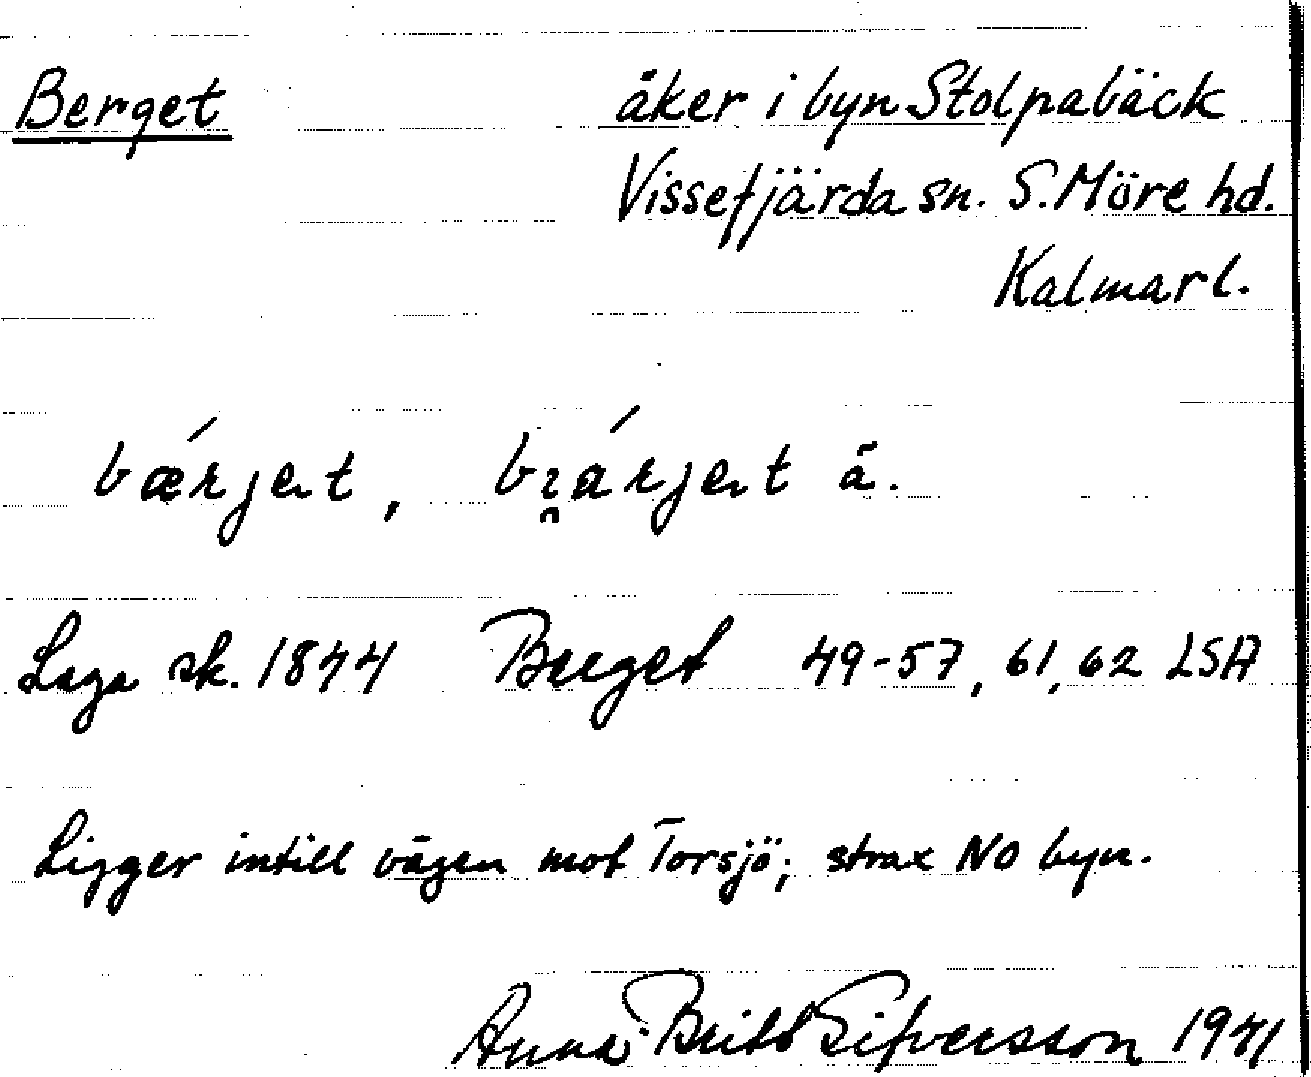 Berget åker i byn Stolpabäck
Vissefjärda sn. S. Möre hd.
Kalmar l.
bǽrjet, bi̯árjet ä.
Laga sk. 1844 Berget 49-57, 61, 62 LSA
Ligger intill vägen mot Torsjö; strax NO byn.
Anna-Britt Sifversson 1941